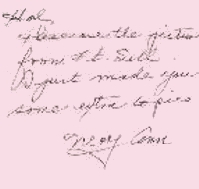 Hal,
Please me the picture
from Ft. Sill.
I just made you
some extra to give
Mary Ann